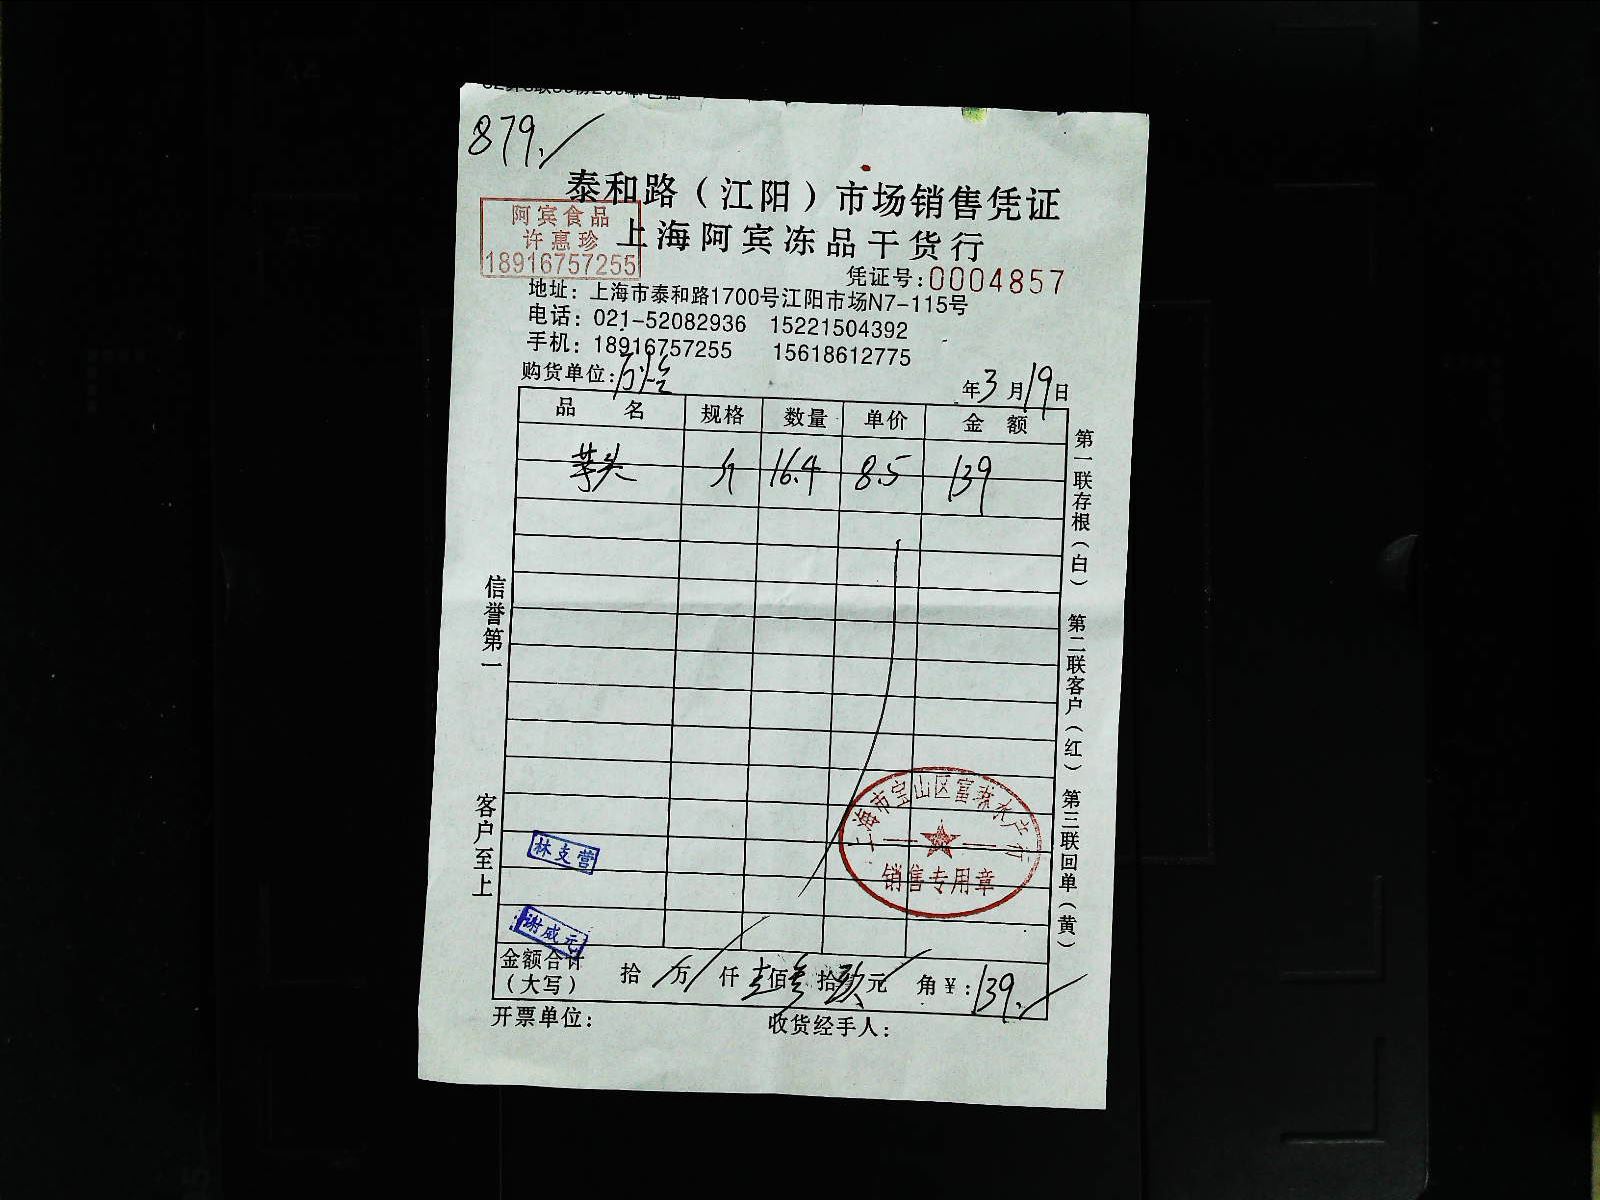 879.
泰和路（江阳）市场销售凭证
阿宾食品
许惠珍
18916757255
上海阿宾冻品干货行
凭证号:0004857
地址：上海市泰和路1700号江阳市场N7-115号
电话：021-52082936 15221504392
手机：18916757255 15618612775
购货单位:
年3月19日
品 名 规格 数量 单价 金 额
芋头 斤 16.4 8.5 139
第一联存根（白） 第二联客户（红） 第三联回单（黄）
信誉第一 客户至上
上海市宝山区富森水产行
销售专用章
林支营
谢威元
金额合计（大写） 拾 万 仟 壹佰叁拾玖元 角￥:139.
开票单位： 收货经手人：